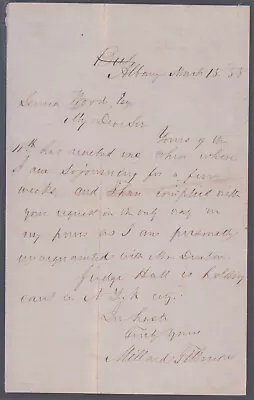 Albany March 15. 53
My Dear Sir
Yours of the
11th has reached me here where
I am sojourning for a few
weeks, and I have complied with
your request in the only way in
my power as I am personally
unacquainted with Mr.
Judge Hall is holding
court in N. York city.
In haste
Truly Yours
Millard Fillmore